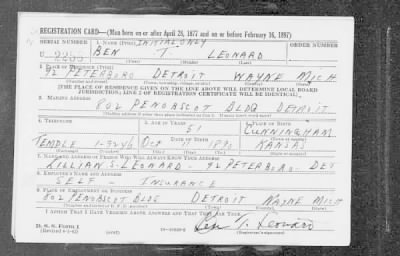 REGISTRATION CARD—(Men born on or after April 28, 1877 and on or before February 16, 1897)
SERIAL NUMBER 1. NAME (Print) INITIAL ONLY ORDER NUMBER
U 2285 BEN T. LEONARD
(First) (Middle) (Last)
2. PLACE OF RESIDENCE (Print)
92 PETERBORO DETROIT WAYNE MICH
(Number and street) (Town, township, village, or city) (County) (State)
[THE PLACE OF RESIDENCE GIVEN ON THE LINE ABOVE WILL DETERMINE LOCAL BOARD
JURISDICTION; LINE 2 OF REGISTRATION CERTIFICATE WILL BE IDENTICAL]
3. MAILING ADDRESS
802 PENOBSCOT BLDG DETROIT
[Mailing address if other than place indicated on line 2. If same insert word same]
4. TELEPHONE 5. AGE IN YEARS 6. PLACE OF BIRTH
51 CUNNINGHAM
DATE OF BIRTH
TEMPLE 1-3246 OCT 11 1890 KANSAS
(Exchange) (Number) (Mo.) (Day) (Yr.) (State or country)
7. NAME AND ADDRESS OF PERSON WHO WILL ALWAYS KNOW YOUR ADDRESS
LILLIAN S. LEONARD - 92 PETERBORO - DET
8. EMPLOYER'S NAME AND ADDRESS
SELF INSURANCE
9. PLACE OF EMPLOYMENT OR BUSINESS
802 PENOBSCOT BLDG DETROIT WAYNE MICH
(Number and street or R. F. D. number) (Town) (County) (State)
I AFFIRM THAT I HAVE VERIFIED ABOVE ANSWERS AND THAT THEY ARE TRUE.
D. S. S. Form 1 Ben T. Leonard
(Revised 4-1-42) (over) (Registrant's signature)